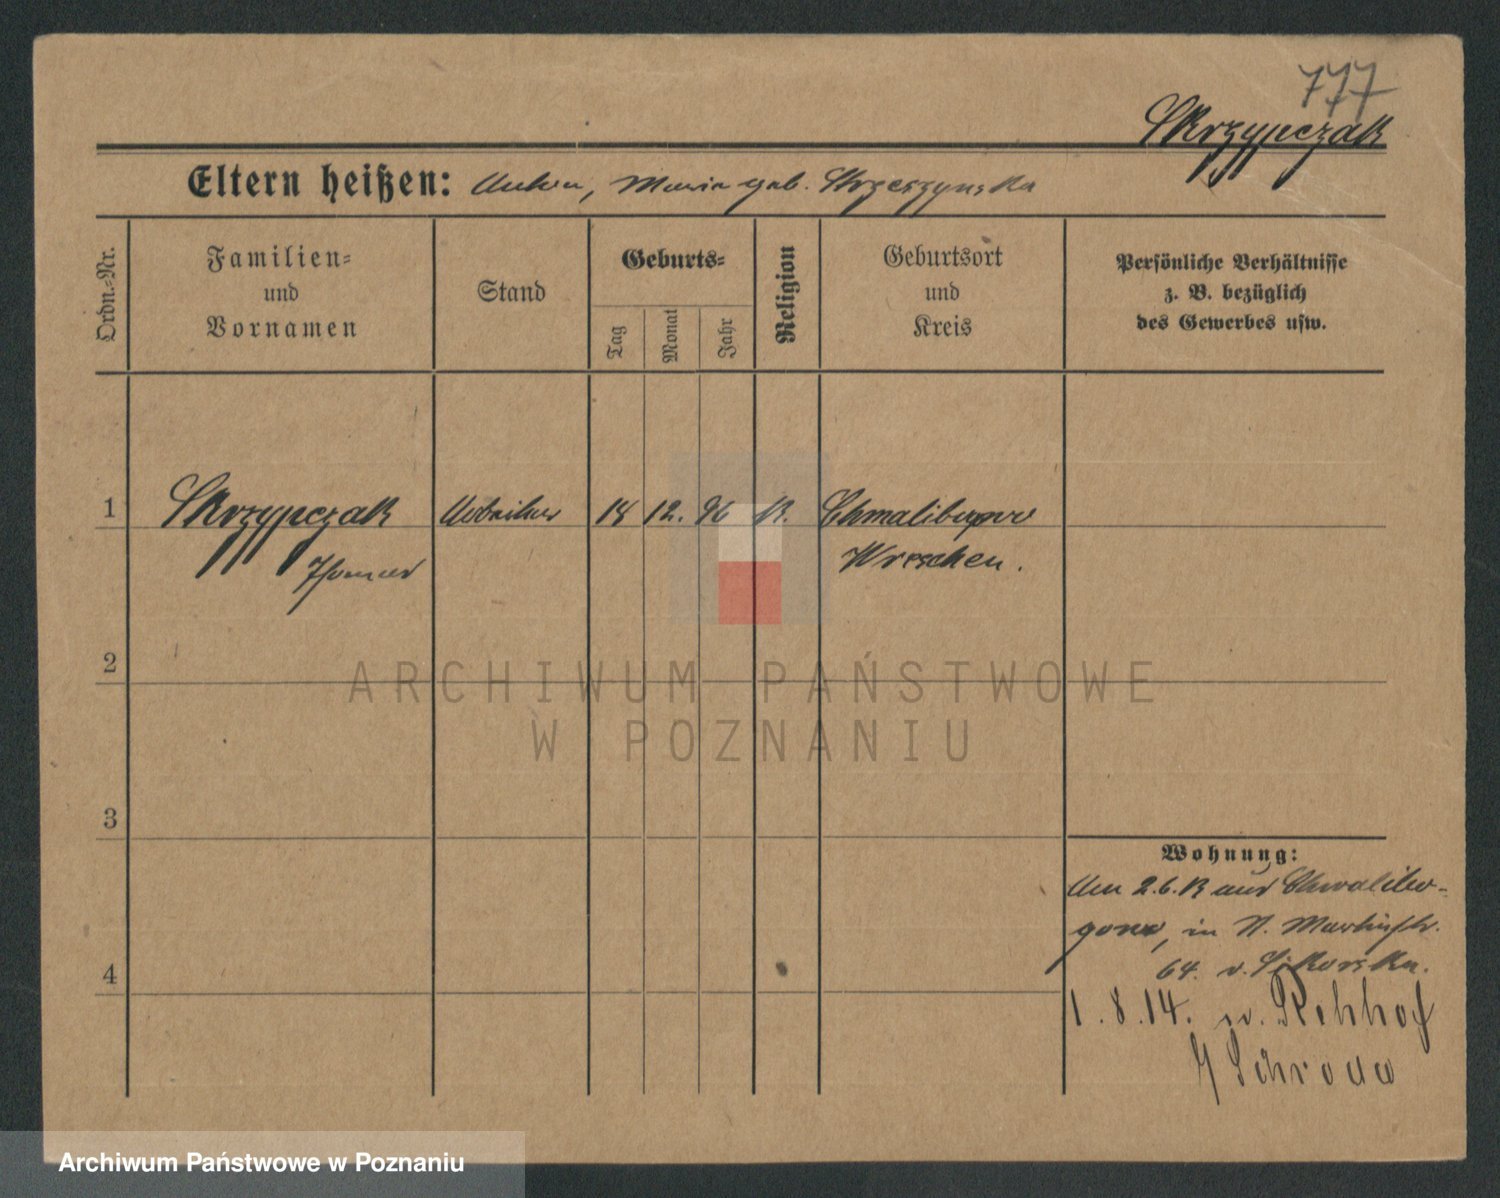 777
Skrzypczak
Eltern heißen: Anton, Maria geb. Strzeszynska
Ordn.-Nr.
Familien-
und
Vornamen
Stand
Geburts-
Tag
Monat
Jahr
Religion
Geburtsort
und
Kreis
Persönliche Verhältnisse
z. B. bezüglich
des Gewerbes usw.
1 Skrzypczak Arbeiter 18 12. 96 K. Chmalibogowo
Thomas Wreschen.
2
3
4
Wohnung:
Am 2.6.13 aus Chwalibo-
gowo, in H. Martinstr.
64. v. Sikorska.
1.8.14. n. Rehhof
Schroda
ARCHIWUM PAŃSTWOWE
W POZNANIU
Archiwum Państwowe w Poznaniu